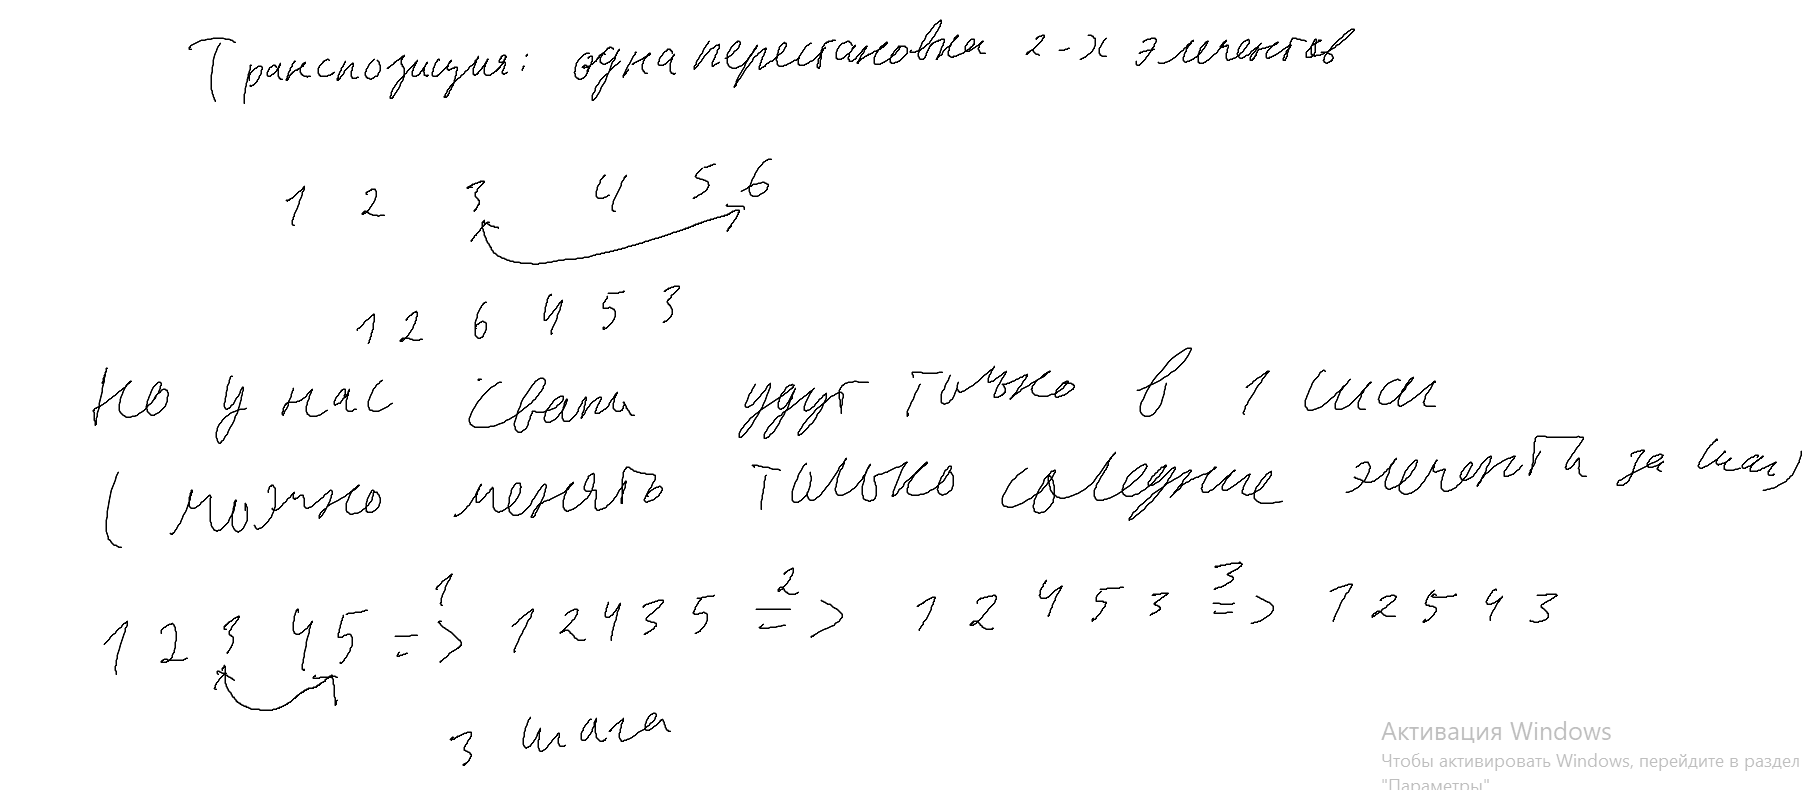 Транспозиция: одна перестановка 2-х элементов
1 2 3 4 5 6
1 2 6 4 5 3
Но у нас свапы идут только в 1 шаг
(можно менять только соседние элементы за шаг)
1 2 3 4 5 =>¹ 1 2 4 3 5 =>² 1 2 4 5 3 =>³ 1 2 5 4 3
3 шага
Активация Windows
Чтобы активировать Windows, перейдите в раздел
"Параметры"